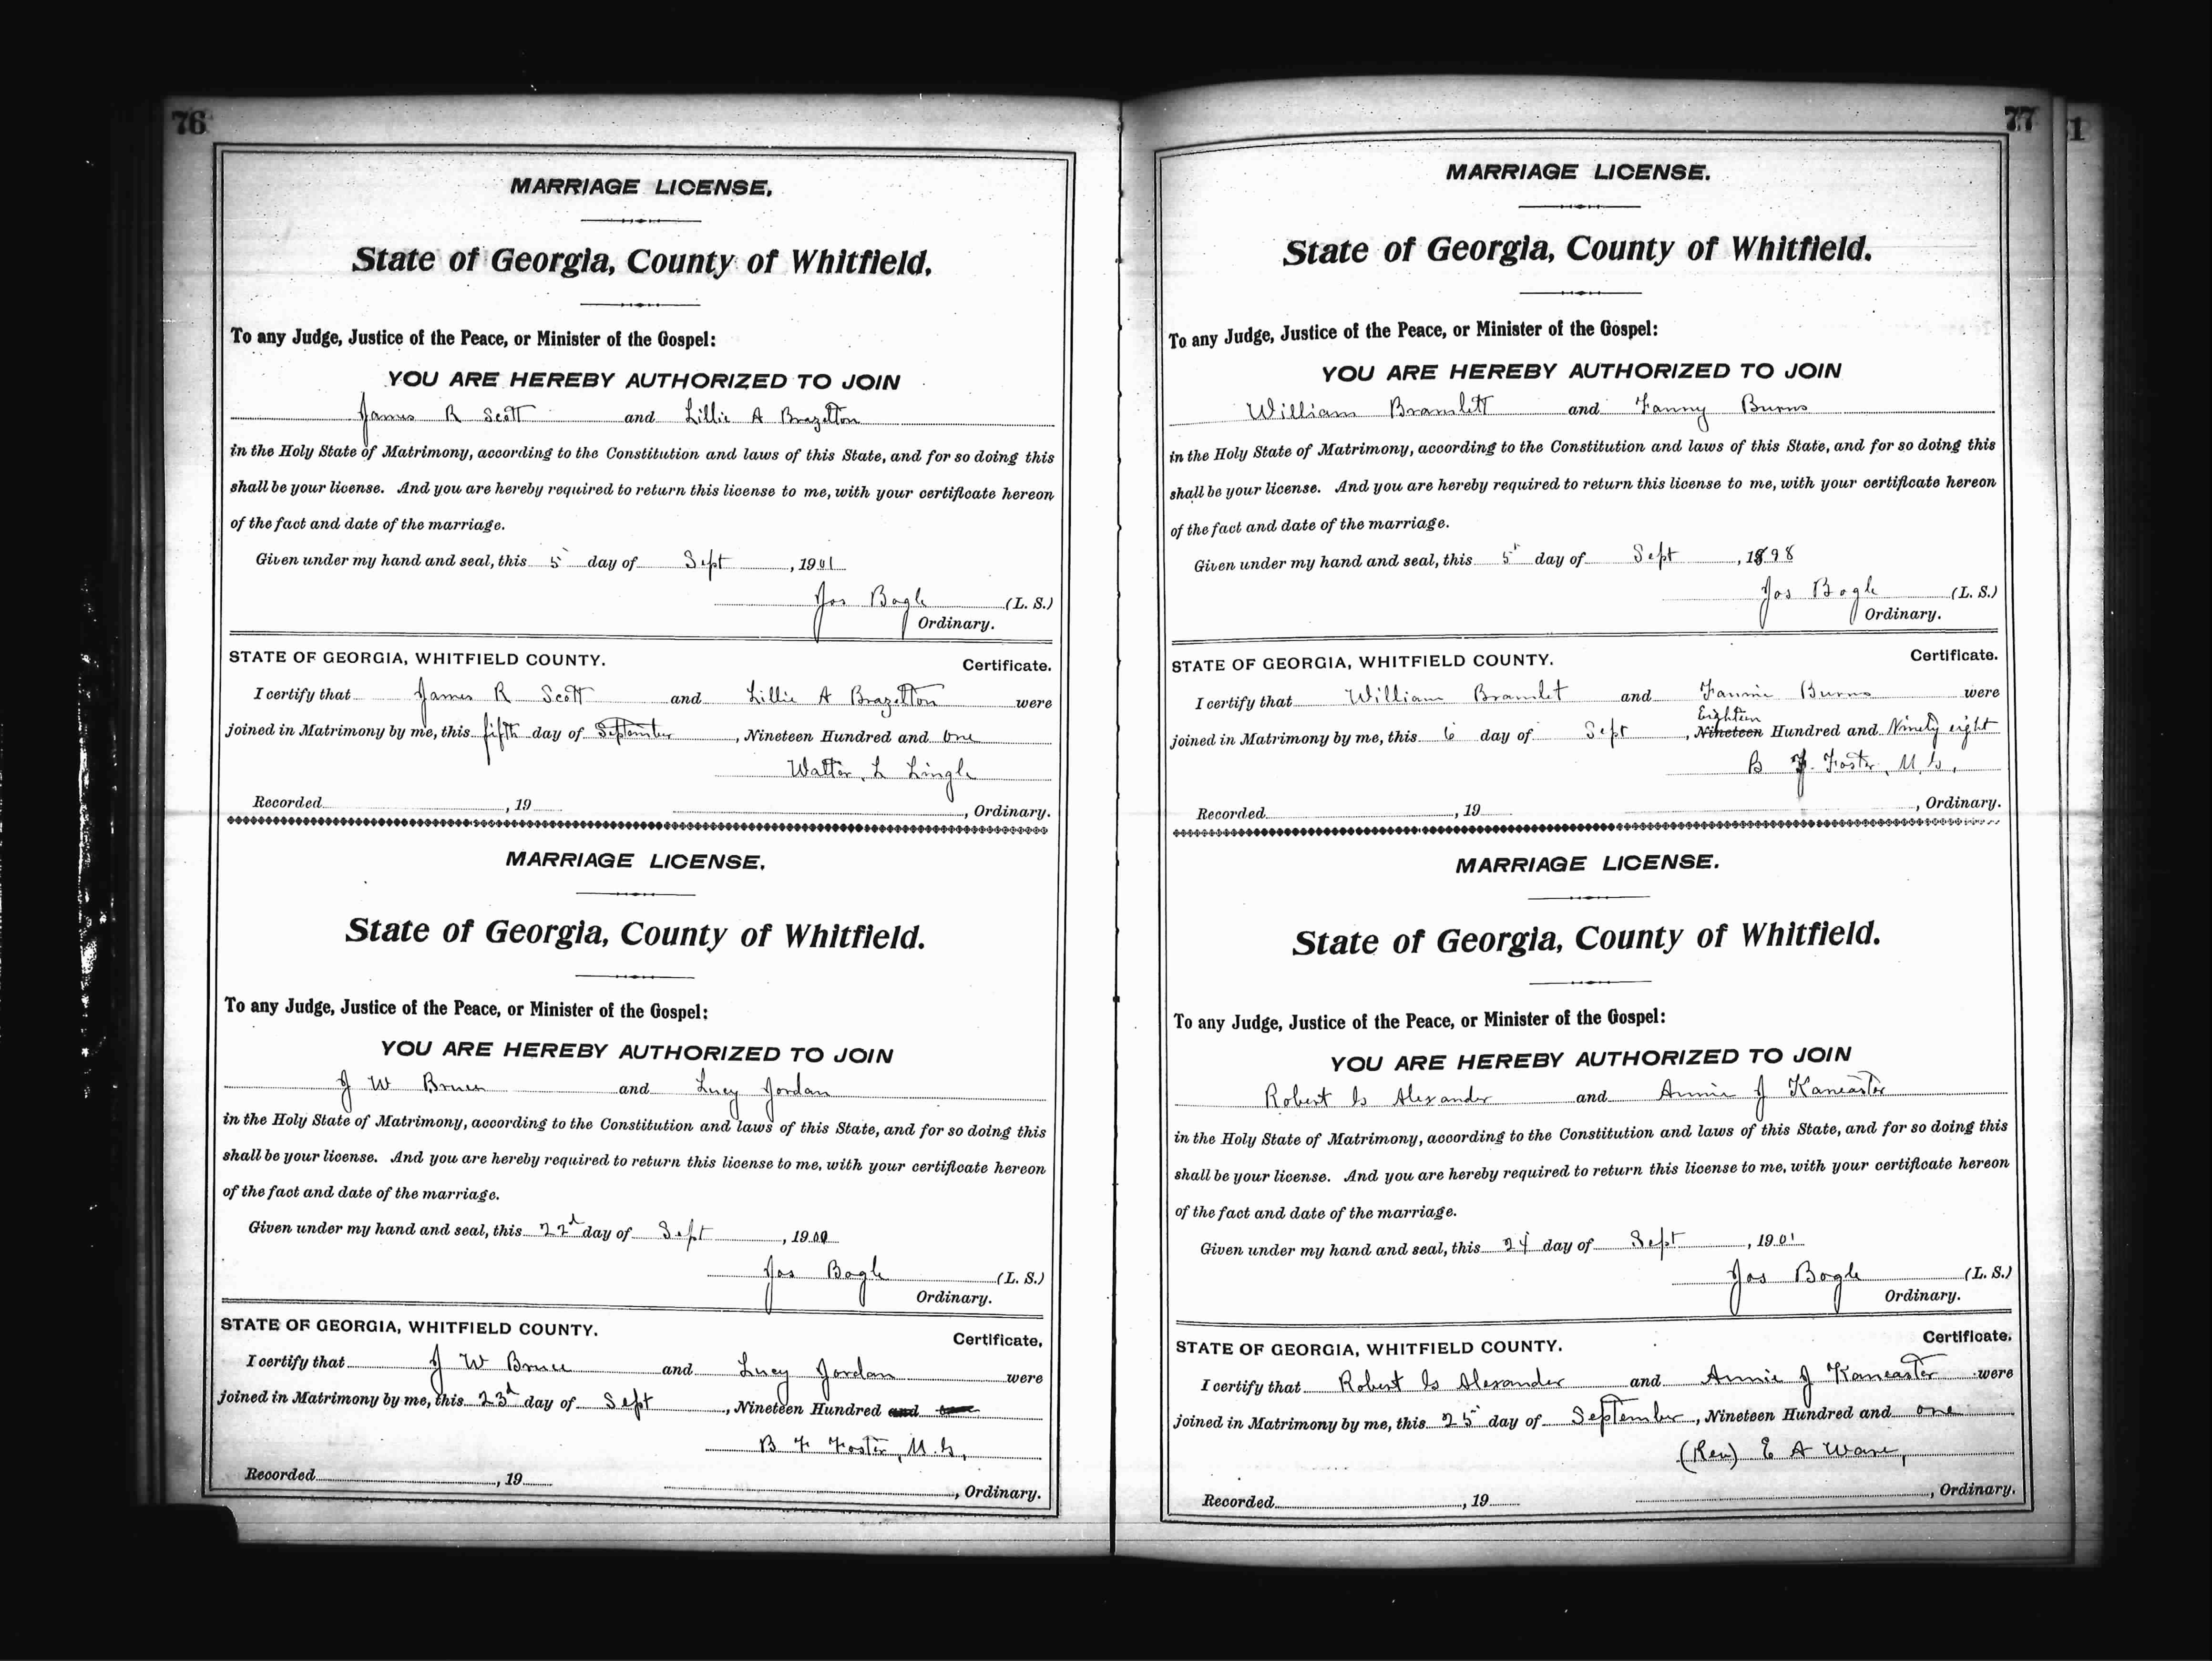 76
MARRIAGE LICENSE.
State of Georgia, County of Whitfield.
To any Judge, Justice of the Peace, or Minister of the Gospel:
YOU ARE HEREBY AUTHORIZED TO JOIN
James R Scott and Lillie A Brazelton
in the Holy State of Matrimony, according to the Constitution and laws of this State, and for so doing this
shall be your license. And you are hereby required to return this license to me, with your certificate hereon
of the fact and date of the marriage.
Given under my hand and seal, this 5 day of Sept, 1901
Jos Bogle (L. S.)
Ordinary.
STATE OF GEORGIA, WHITFIELD COUNTY. Certificate.
I certify that James R Scott and Lillie A Brazelton were
joined in Matrimony by me, this fifth day of September, Nineteen Hundred and One
Walter L Lingle
Recorded , 19 , Ordinary.
MARRIAGE LICENSE.
State of Georgia, County of Whitfield.
To any Judge, Justice of the Peace, or Minister of the Gospel:
YOU ARE HEREBY AUTHORIZED TO JOIN
J W Bruce and Lucy Jordan
in the Holy State of Matrimony, according to the Constitution and laws of this State, and for so doing this
shall be your license. And you are hereby required to return this license to me, with your certificate hereon
of the fact and date of the marriage.
Given under my hand and seal, this 22d day of Sept, 1900
Jos Bogle (L. S.)
Ordinary.
STATE OF GEORGIA, WHITFIELD COUNTY. Certificate.
I certify that J W Bruce and Lucy Jordan were
joined in Matrimony by me, this 23d day of Sept, Nineteen Hundred and
B F Foster, M. G.,
Recorded , 19 , Ordinary.
77
1
MARRIAGE LICENSE.
State of Georgia, County of Whitfield.
To any Judge, Justice of the Peace, or Minister of the Gospel:
YOU ARE HEREBY AUTHORIZED TO JOIN
William Bramlett and Fanny Burns
in the Holy State of Matrimony, according to the Constitution and laws of this State, and for so doing this
shall be your license. And you are hereby required to return this license to me, with your certificate hereon
of the fact and date of the marriage.
Given under my hand and seal, this 5 day of Sept, 1898
Jos Bogle (L. S.)
Ordinary.
STATE OF GEORGIA, WHITFIELD COUNTY. Certificate.
I certify that William Bramlet and Fannie Burns were
Eighteen
joined in Matrimony by me, this 6 day of Sept, Nineteen Hundred and Ninety eight
B F. Foster, M. G.,
Recorded , 19 , Ordinary.
MARRIAGE LICENSE.
State of Georgia, County of Whitfield.
To any Judge, Justice of the Peace, or Minister of the Gospel:
YOU ARE HEREBY AUTHORIZED TO JOIN
Robert G Alexander and Annie J Kancaster
in the Holy State of Matrimony, according to the Constitution and laws of this State, and for so doing this
shall be your license. And you are hereby required to return this license to me, with your certificate hereon
of the fact and date of the marriage.
Given under my hand and seal, this 24 day of Sept, 1901
Jos Bogle (L. S.)
Ordinary.
STATE OF GEORGIA, WHITFIELD COUNTY. Certificate.
I certify that Robert G Alexander and Annie J Kancaster were
joined in Matrimony by me, this 25 day of September, Nineteen Hundred and one
(Rev) E A Ware,
Recorded , 19 , Ordinary.